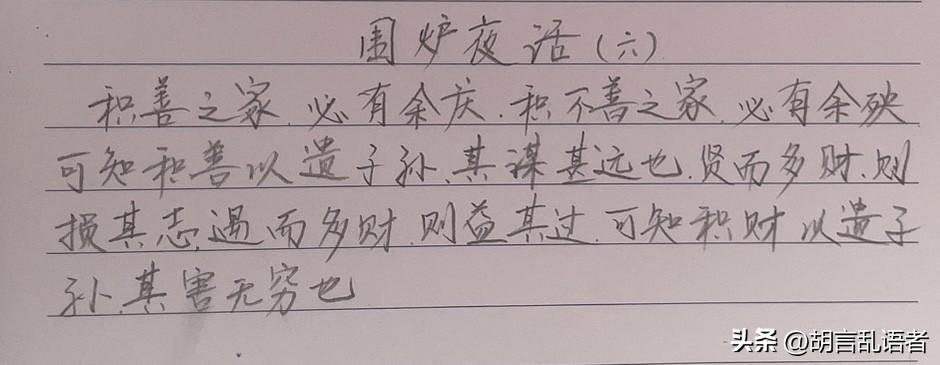 围炉夜话(六)
积善之家、必有余庆、积不善之家、必有余殃
可知积善以遗子孙、其谋甚远也、贤而多财、则
损其志、遇而多财、则益其过、可知积财以遗子
孙、其害无穷也
头条 @胡言乱语者